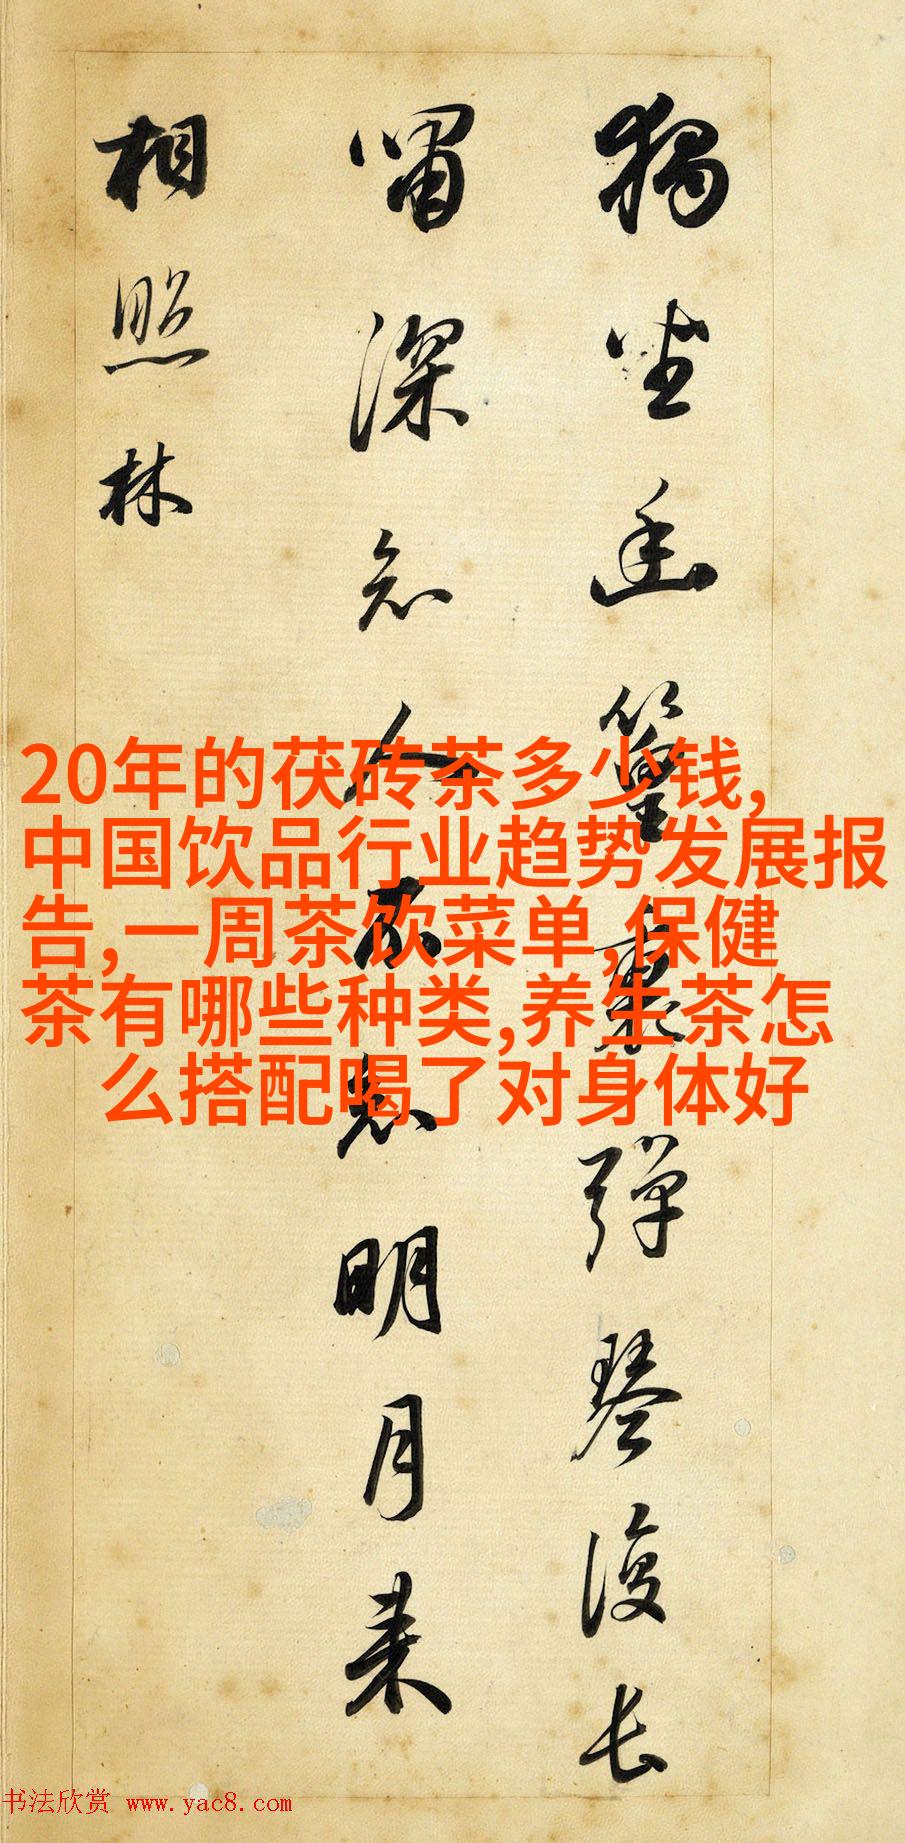 獨坐幽篁裏彈琴復長
嘯深知人不知明月来
相照林
20年的茯砖茶多少钱,
中国饮品行业趋势发展报
告,一周茶饮菜单,保健
茶有哪些种类,养生茶怎
么搭配喝了对身体好
书法欣赏 www.yac8.com